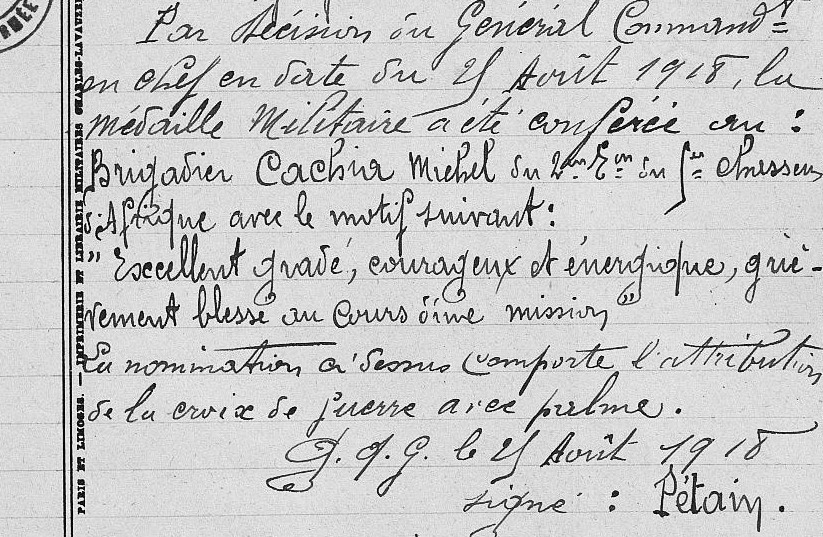 Par Décision du Général Commandt
en chef en date du 25 Août 1918, la
médaille Militaire a été conférée au :
Brigadier Cachia Michel du 2me Eon du 5e Chasseurs
d'Afrique avec le motif suivant :
" Excellent gradé, courageux et énergique, griè-
vement blessé au cours d'une mission "
La nomination ci dessus comporte l'attribution
de la croix de guerre avec palme.
G. Q. G. le 25 Août 1918
signé : Pétain.
PARIS ET LIMOGES. — IMPRIMERIE ET LIBRAIRIE MILITAIRES CHARLES-LAVAUZELLE